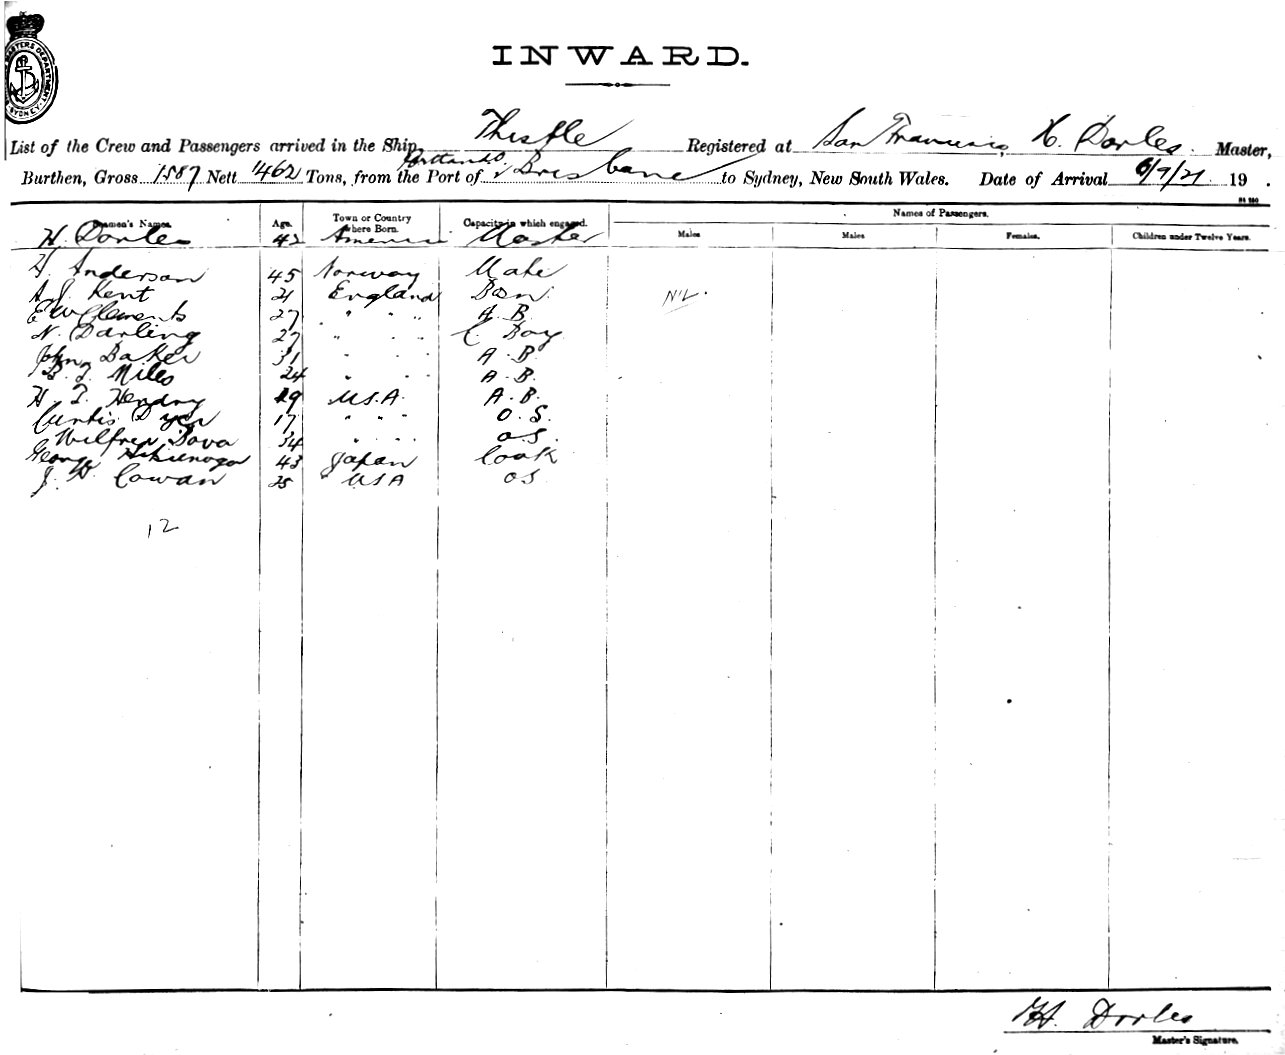 MASTERS DEPARTMENT SYDNEY
INWARD.
List of the Crew and Passengers arrived in the Ship Thistle Registered at San Francisco, H. Dorles. Master,
Burthen, Gross 1587 Nett 462 Tons, from the Port of Brisbane to Sydney, New South Wales. Date of Arrival 6/7/21 19 .
Seamen's Names. Age. Town or Country where Born. Capacity in which engaged. Names of Passengers.
Males Males Females. Children under Twelve Years.
H. Dorles 42 America Master
Anderson 45 Norway Mate
A. J. Kent 21 England Bosn. NIL.
E W Clements 27 " " " A. B.
N. Darling 27 " " " C. Boy
John Baker 31 " " " A. B.
B. J. Miles 24 " " " A. B.
H. J. Hendry 19 U.S.A. A. B.
Curtis Dyer 17 " " " O. S.
Wilfred Bova 34 " " " O.S.
George 43 Japan Cook
J. H. Cowan 25 USA OS
12
H. Dorles
Master's Signature.